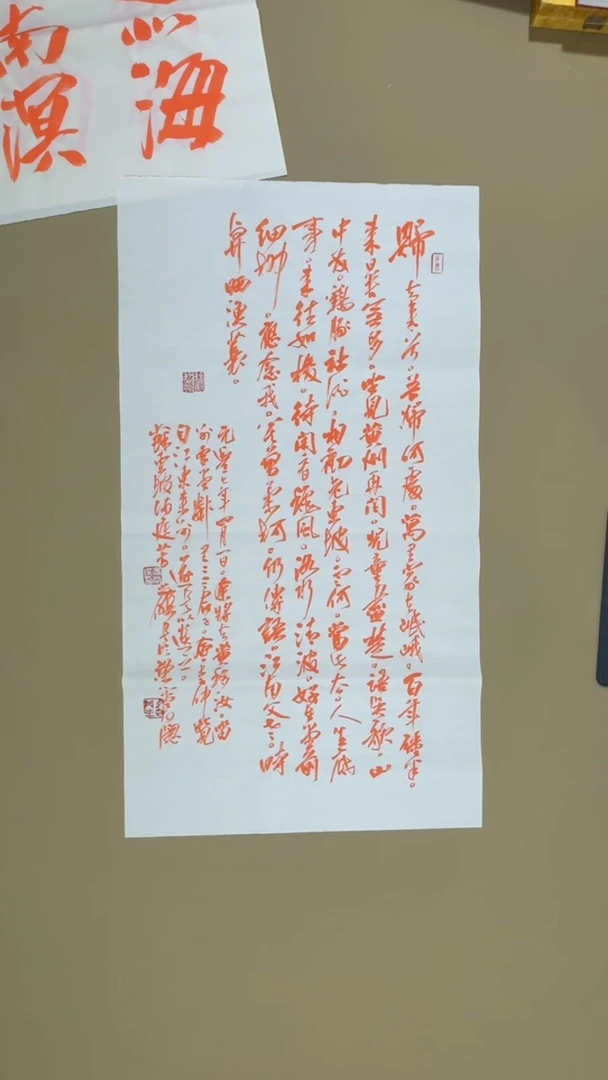 海
南溟
歸去來兮。吾歸何處。萬里家在岷峨。百年強半。
來日苦無多。坐見黃州再閏。兒童盡楚。語吳歌。山
中友。雞豚社酒。相勸老東坡。云何。當此去。人生底
事。來往如梭。待閑看秋風。洛水清波。好在堂前
細柳。應念我。莫剪柔柯。仍傳語。江南父老。時
與晒漁蓑。
元豐七年四月一日。余將去黃移汝。留
別雪堂鄰里二三君子。會李仲覽
自江東來別。遂書以遺之。
蘇東坡滿庭芳